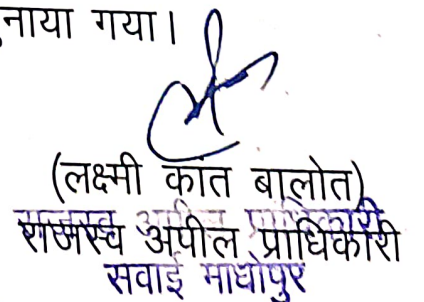 नाया गया।
(लक्ष्मी कांत बालोत)
राजस्व अपील प्राधिकारी
राजस्व अपील प्राधिकारी
सवाई माधोपुर